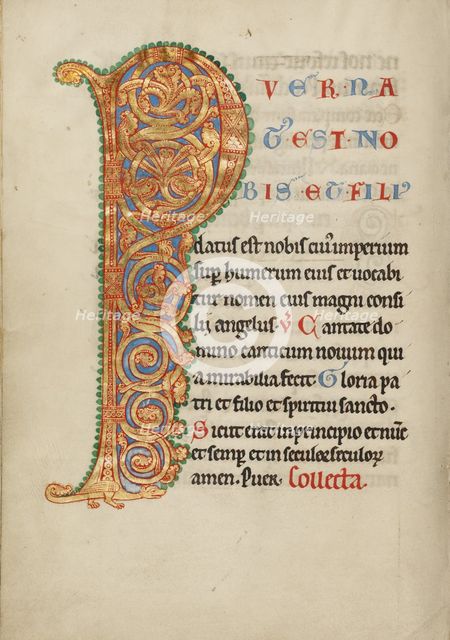 P VER·NA
T·EST·NO
BIS·ET·FILI
datus est nobis cui᷒ imperium
sup̱ humerum eius et uocabi
tur nomen eius magni consi
lij angelus. ℣ Cantate do
mino canticum nouum qui
a mirabilia fecit Gloria pa
tri et filio et spiritui sancto.
Sicut erat in principio et nūc
et semp̱ et in seculoꝝ seculoꝝ
amen. Puer. Collecta.
Heritage Heritage
Heritage Heritage Heritage
Heritage Heritage